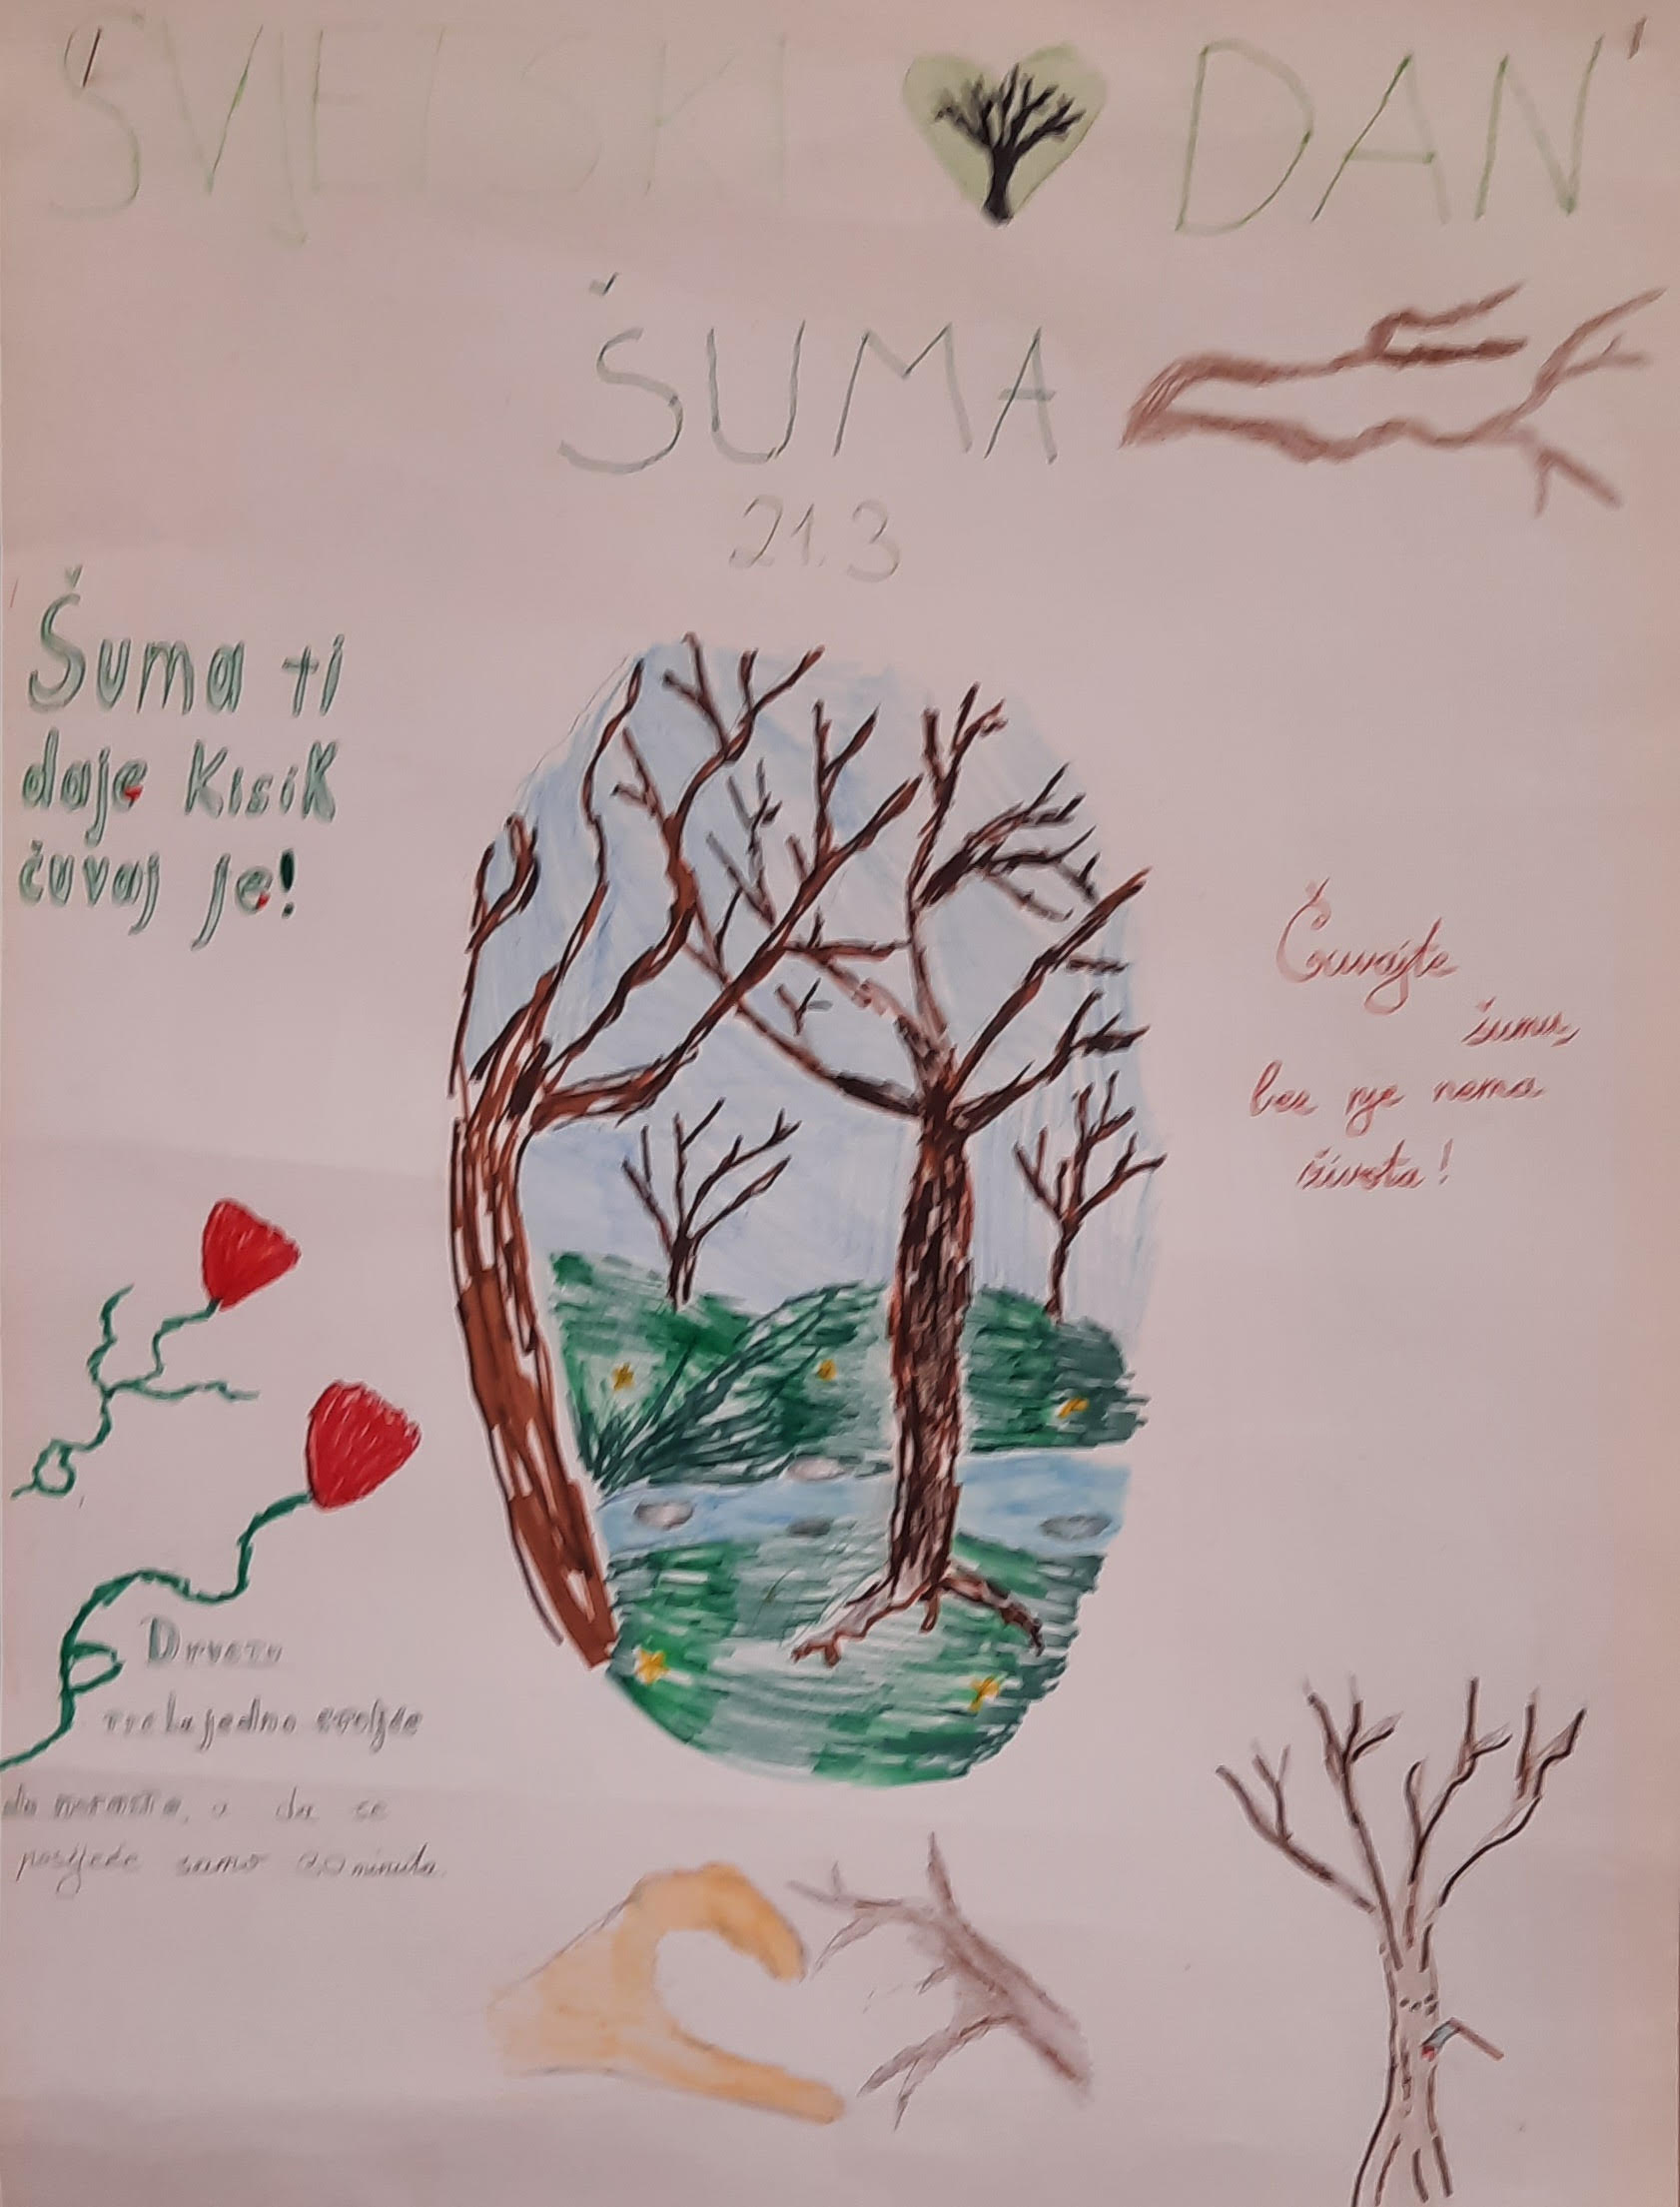 SVJETSKI DAN
ŠUMA
21.3
Šuma ti
daje kisik
čuvaj je!
Čuvajte
šumu,
bez nje nema
života!
Drvetu
treba jedno stoljeće
da naraste, a da se
posiječe samo 20 minuta.